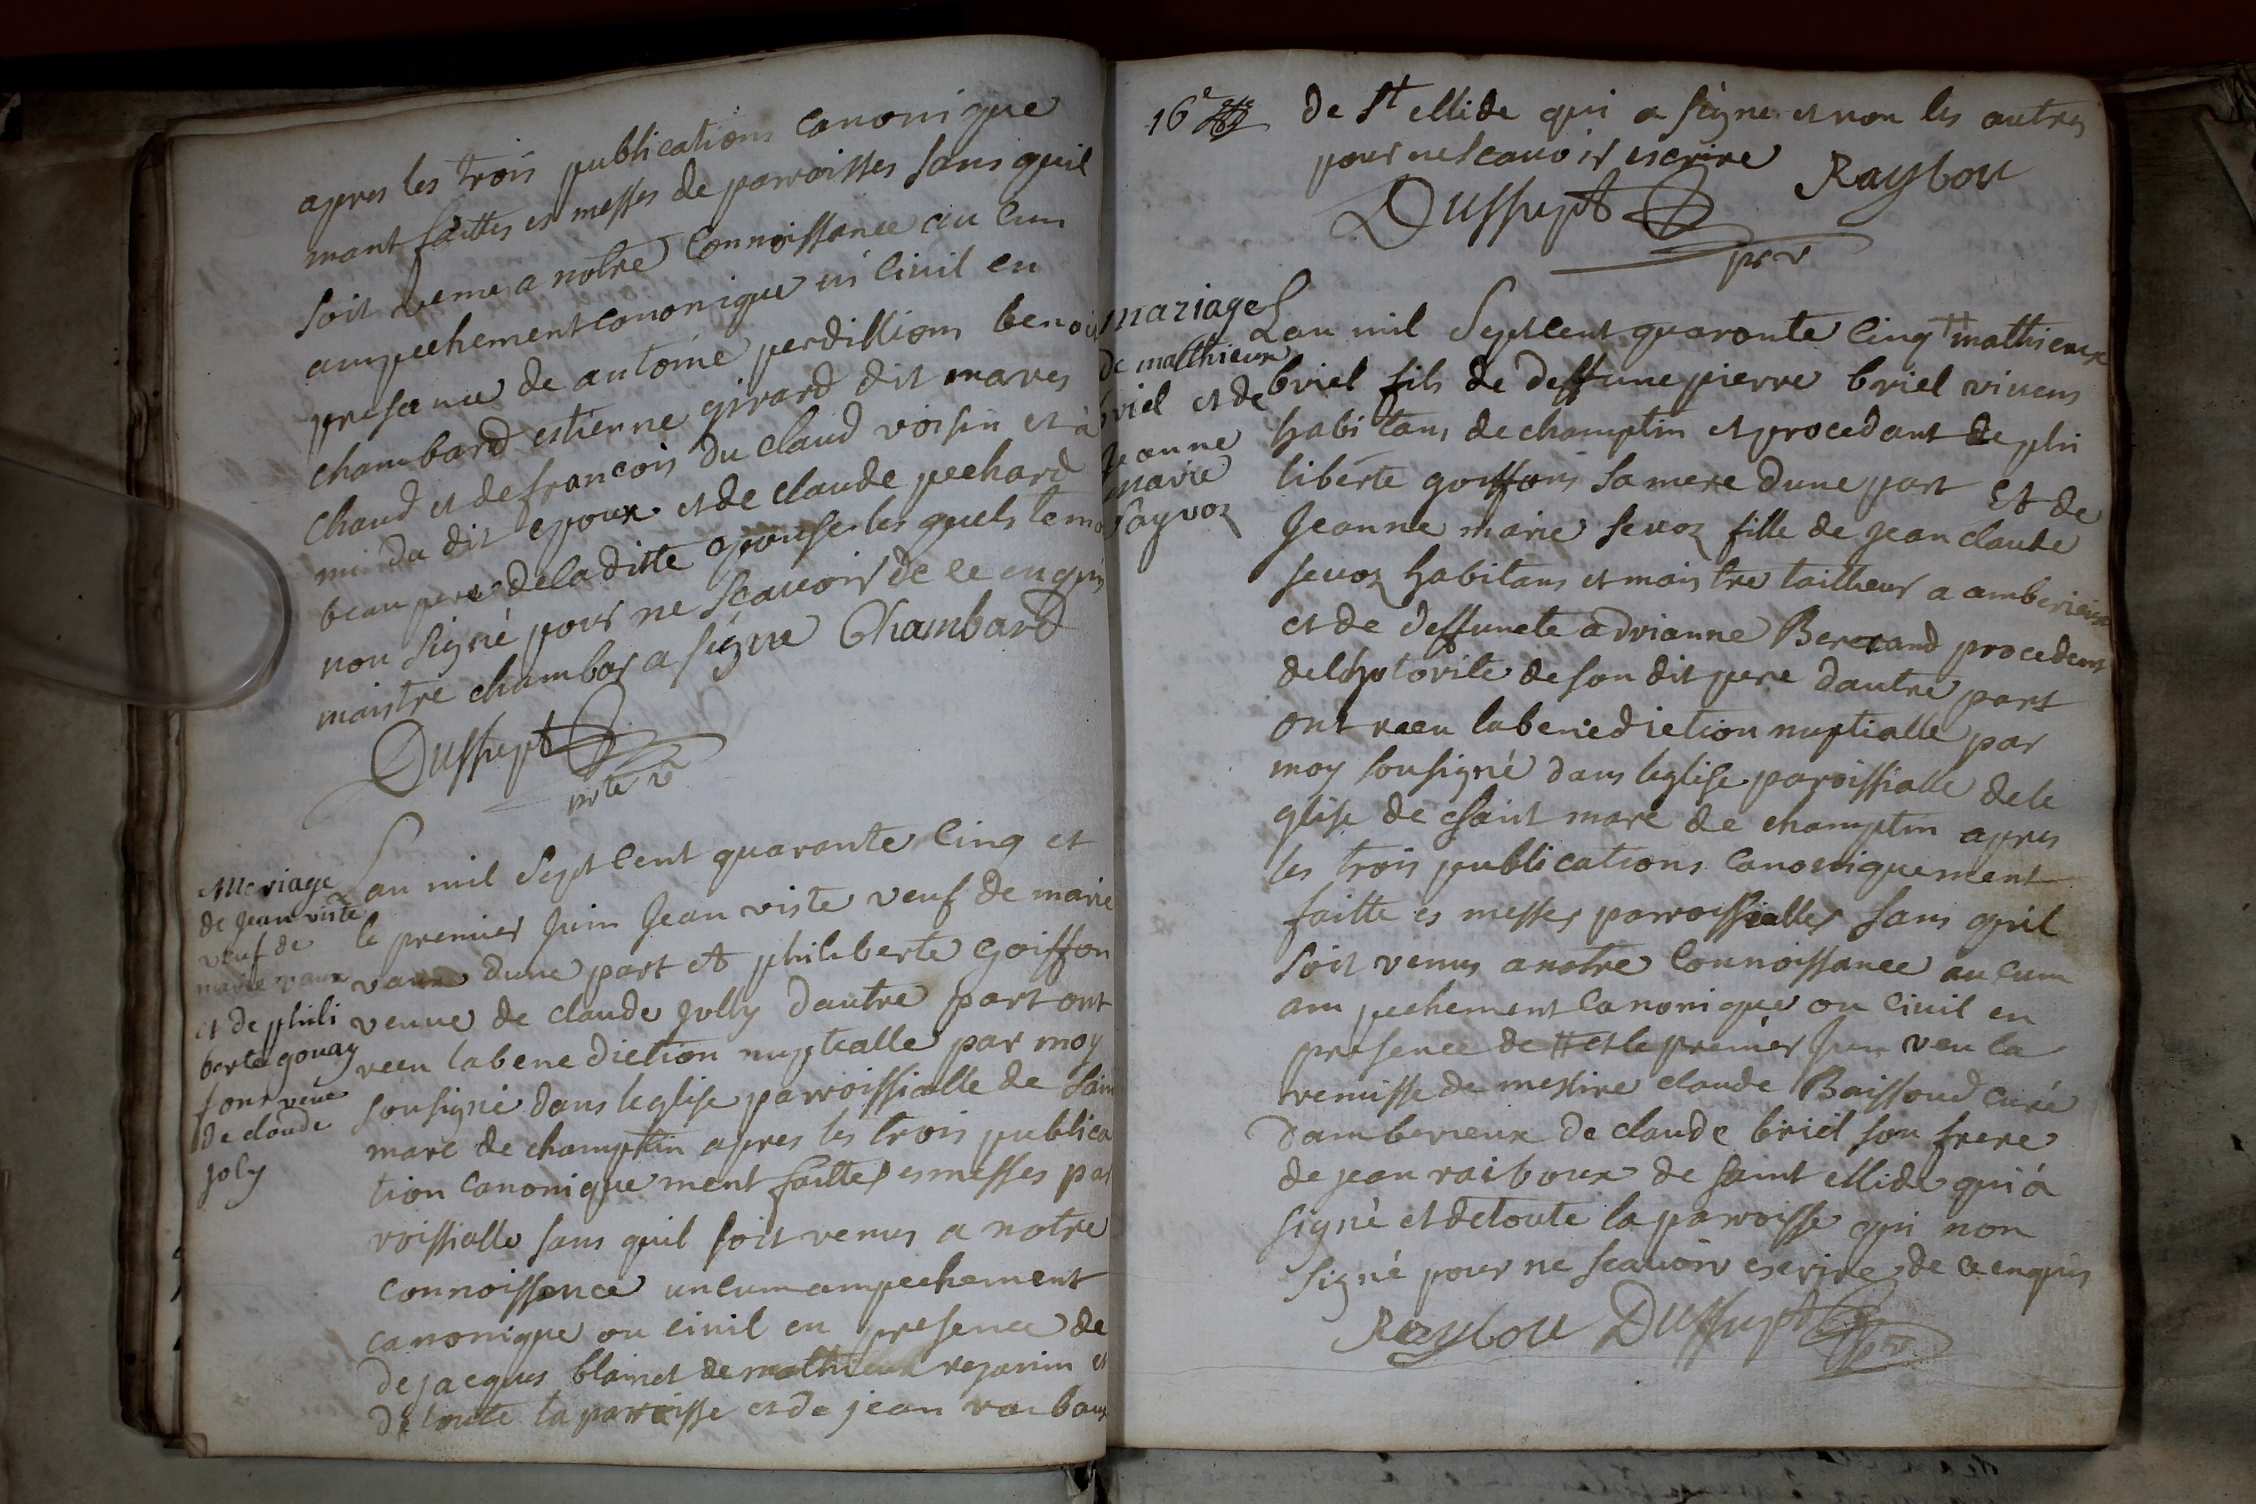 apres les trois publications canonique
mant faittes es messes de parroisses sans quil
soit venu a notre connoissance aucun
ampechement canonique ni civil en
presence de antoine perdillion benoi
chambard estienne girard dit mares
chaud et de francois du claud voisin et a
mi du dit epoux et de claude pechard
beau pere de la ditte epouse les quels temo
non signé pour ne scavoir de ce enquis
maistre chambar a signe Chambard
Dussupt
ptre
Mariage
de jean viste
veuf de
marie vaux
et de phili
berte gouay
fon veve
de claude
joly
Lan mil sept cent quarante cinq et
le premier juin jean viste veuf de marie
vaux dune part et philiberte goiffon
veuve de claude jolly dautre part ont
receu la benediction nuptialle par moy
sousigné dans leglise parroissialle de sain
marc de champtin apres les trois publica
tion canoniquement faittes es messes par
roissialle sans quil soit venus a notre
connoissance uncum ampechement
canonique ou civil en presence de
de jacques blainet de mathieux reganin et
de toute la parroisse et de jean raiboux
16e
de St ellide qui a signe et non les autres
pour ne scavoir escrire Raybou
Dussupt
ptre
mariage
de matthieux
briel et de
jeanne
marie
sayvoz
Lan mil sept cent quarante cinq # mathieux
briel fils de deffunt pierre briel vivens
habitans de champtin et procedant de phi
liberte goiffons sa mere dune part et de
jeanne marie sevoz fille de jean claude
sevoz habitans et maistre tailleur a amberieux
et de deffuncte adrianne Bertrand procedens
de lhotorite de son dit pere dautre part
ont receu la benediction nuptialle par
moy sousigné dans leglise paroissialle dele
glise de saint marc de champtin apres
les trois publications canoniquement
faitte es messes parroissialles sans quil
soit venus a notre connoissance aucum
ampechement canonique ou civil en
presence de # et le premier juin veu la
remisse de messire claude Baissoud curé
damberieux de claude briel son frere
de jean raiboux de saint ellide qui à
signé et de toute la parroisse qui non
signé pour ne scavoir escrire de ce enquis
Raybou Dussupt
ptre